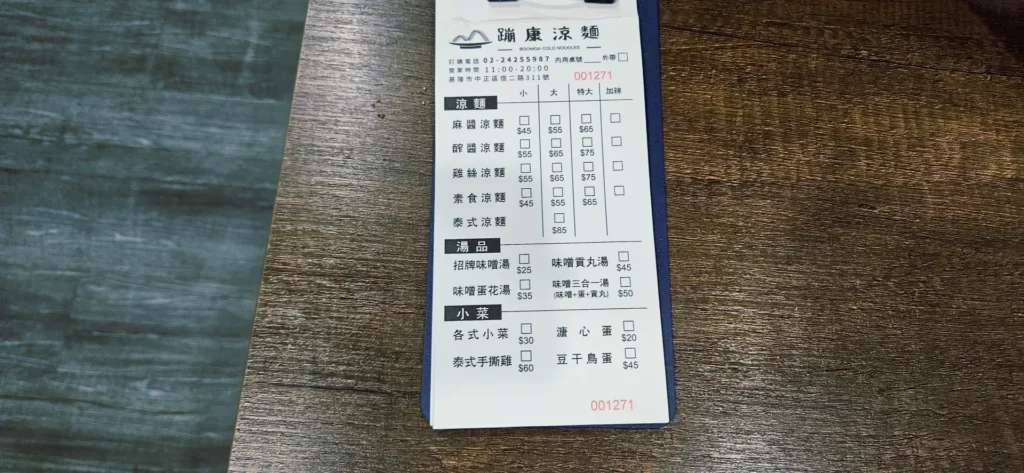 蹦康涼麵
BOOMGA COLD NOODLES
訂購電話 02-24255987 內用桌號 外帶
營業時間 11:00-20:00
基隆市中正區信二路311號 001271
涼麵 小 大 特大 加辣
麻醬涼麵 $45 $55 $65
酢醬涼麵 $55 $65 $75
雞絲涼麵 $55 $65 $75
素食涼麵 $45 $55 $65
泰式涼麵 $85
湯品
招牌味噌湯 $25 味噌貢丸湯 $45
味噌蛋花湯 $35 味噌三合一湯 $50
(味噌+蛋+貢丸)
小菜
各式小菜 $30 溏心蛋 $20
泰式手撕雞 $60 豆干鳥蛋 $45
001271